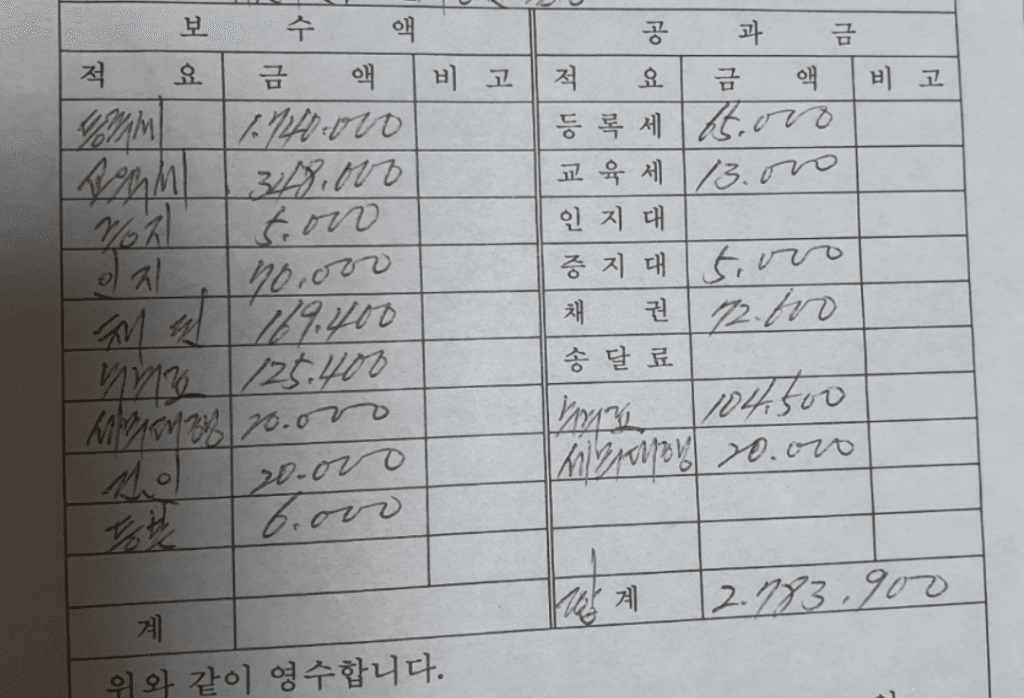 보 수 액 공 과 금
적 요 금 액 비 고 적 요 금 액 비 고
등록세 1.740.000 등 록 세 65.000
교육세 348.000 교 육 세 13.000
증지 5.000 인 지 대
인지 70.000 증 지 대 5.000
채 권 169.400 채 권 72.600
누진료 125.400 송 달 료
세무대행 20.000 누진료 104.500
확인 20.000 세무대행 20.000
등본 6.000
계 합 계 2.783.900
위와 같이 영수합니다.